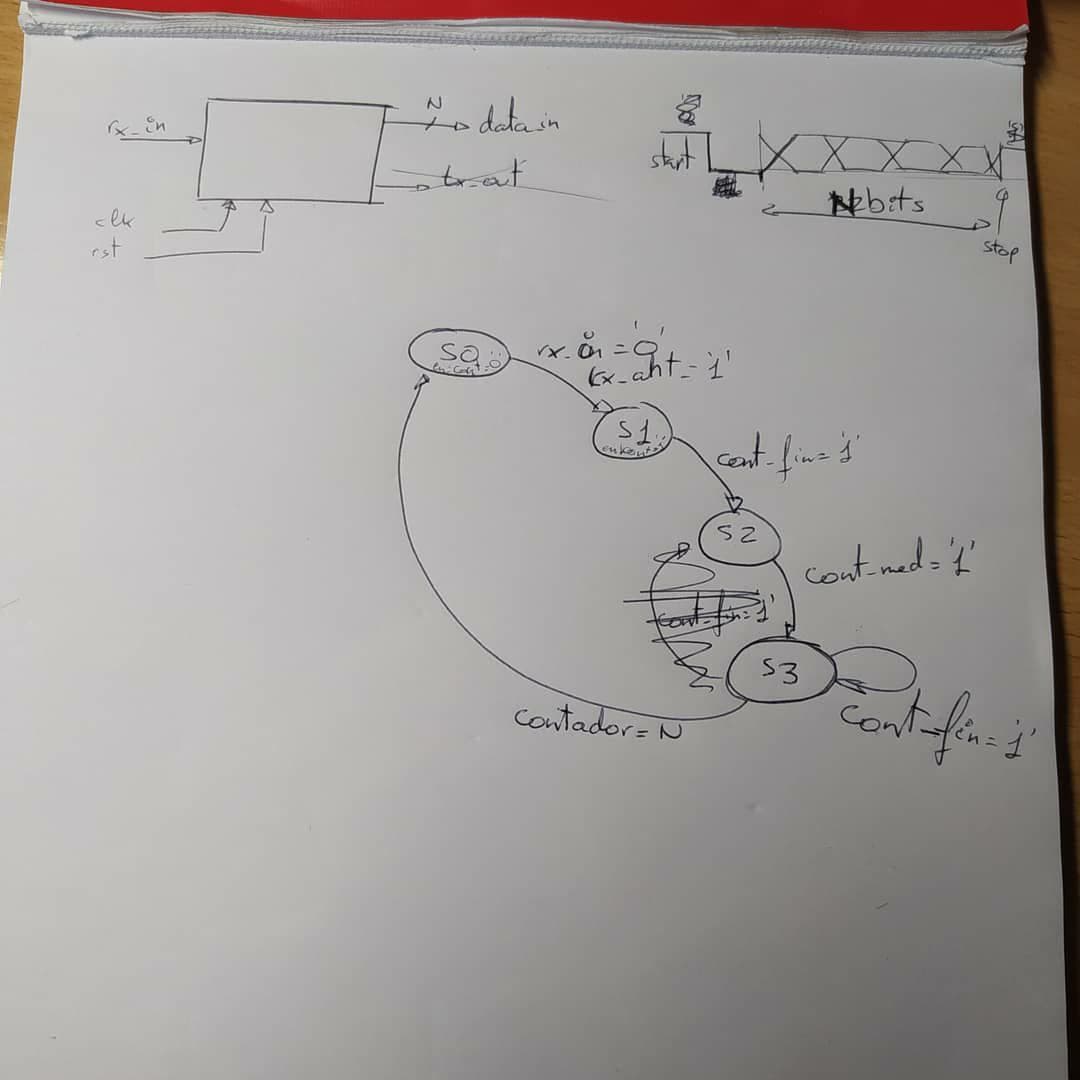 rx_in
N
data_in
tx_out
clk
rst
start
N bits
stop
S0
en_cont=0
rx_in = '0'
rx_ant = '1'
S1
cont_fin = '1'
S2
cont_med = '1'
cont_fin = 1'
S3
cont_fin = '1'
contador = N